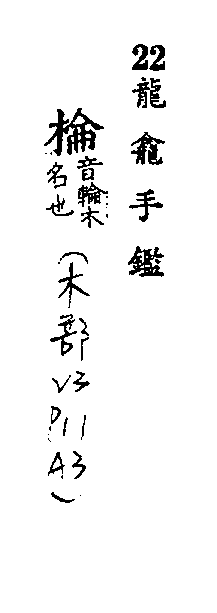 22龍龕手鑑
棆音輪木名也(木部V3P11A3)